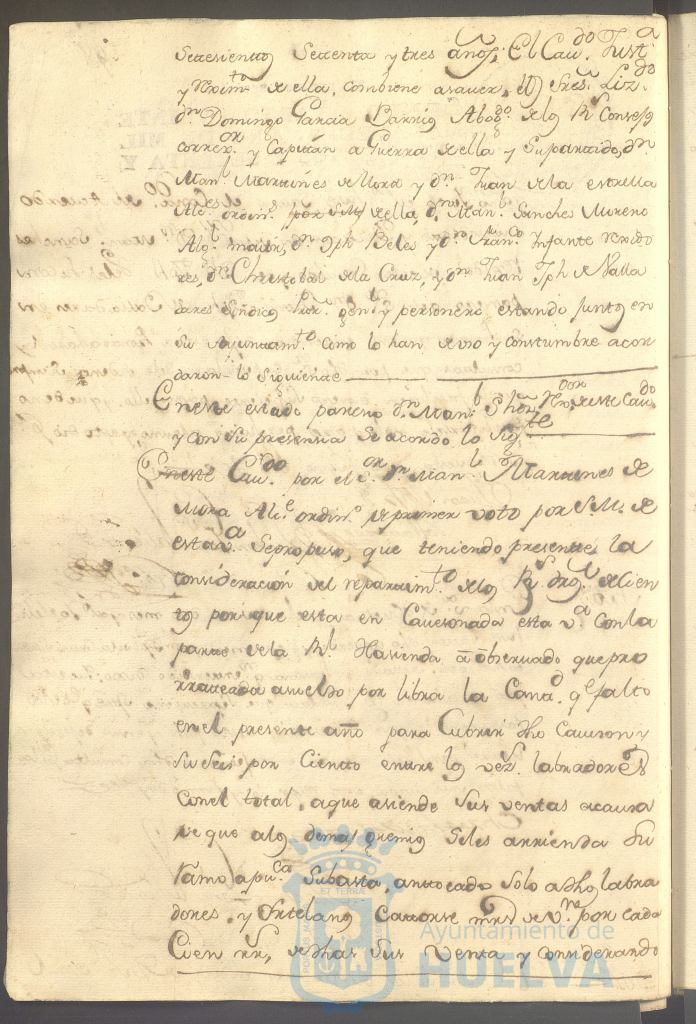 Setesientos Setenta y tres años; El Cav.do Just.a
y Reximto de ella, combiene a saver, los Sres Liz.do
dn Domingo Garcia Barrios Abog.do de los Rs Consejos
correx.or y Capitán a Guerra de ella y Supartido, dn
Man.l Martines de Mora y dn Juan de la estrella
Alc.des ordin.s por S M de ella, dn Man.l Sanches Moreno
Alg.l maior, dn Jph Beles y dn Fran.co Infante Rexido
res, dn Christobal de la Cruz, y dn Juan Jph de Valla
dares Síndicos Pror gen.l y personero estando juntos en
su Ayuntam.to como lo han de uso y constumbre acor
daron lo siguiente
En este estado parecio dn Man.l Rexor de este Cav.do
y con su presensia se acordo lo sig.te
En este Cav.do por el Sor dn Man.l Martines de
Mora Alc.e ordin.o de primer voto por S. M. de
esta v.a se propuso, que teniendo presente la
consideración del repartim.to de los Rs dros de Cien
tos por que esta en Cavesonada esta v.a con la
parte de la Rl Hasienda a observado que pro
rrateada a sueldo por libra la Cantd qe falto
en el presente año para Cubrir dho Caveson y
su seis por Ciento entre los vez.s labradores
con el total, a que asiende sus ventas a causa
de que a los demas gremios se les arrienda su
ramo a pu.ca Subasta, a tocado solo a dhos labra
dores, y Ortelanos Catorse mrs de v.n por cada
Cien rr.s de dhas sus venta y considerando
Ayuntamiento de
HUELVA